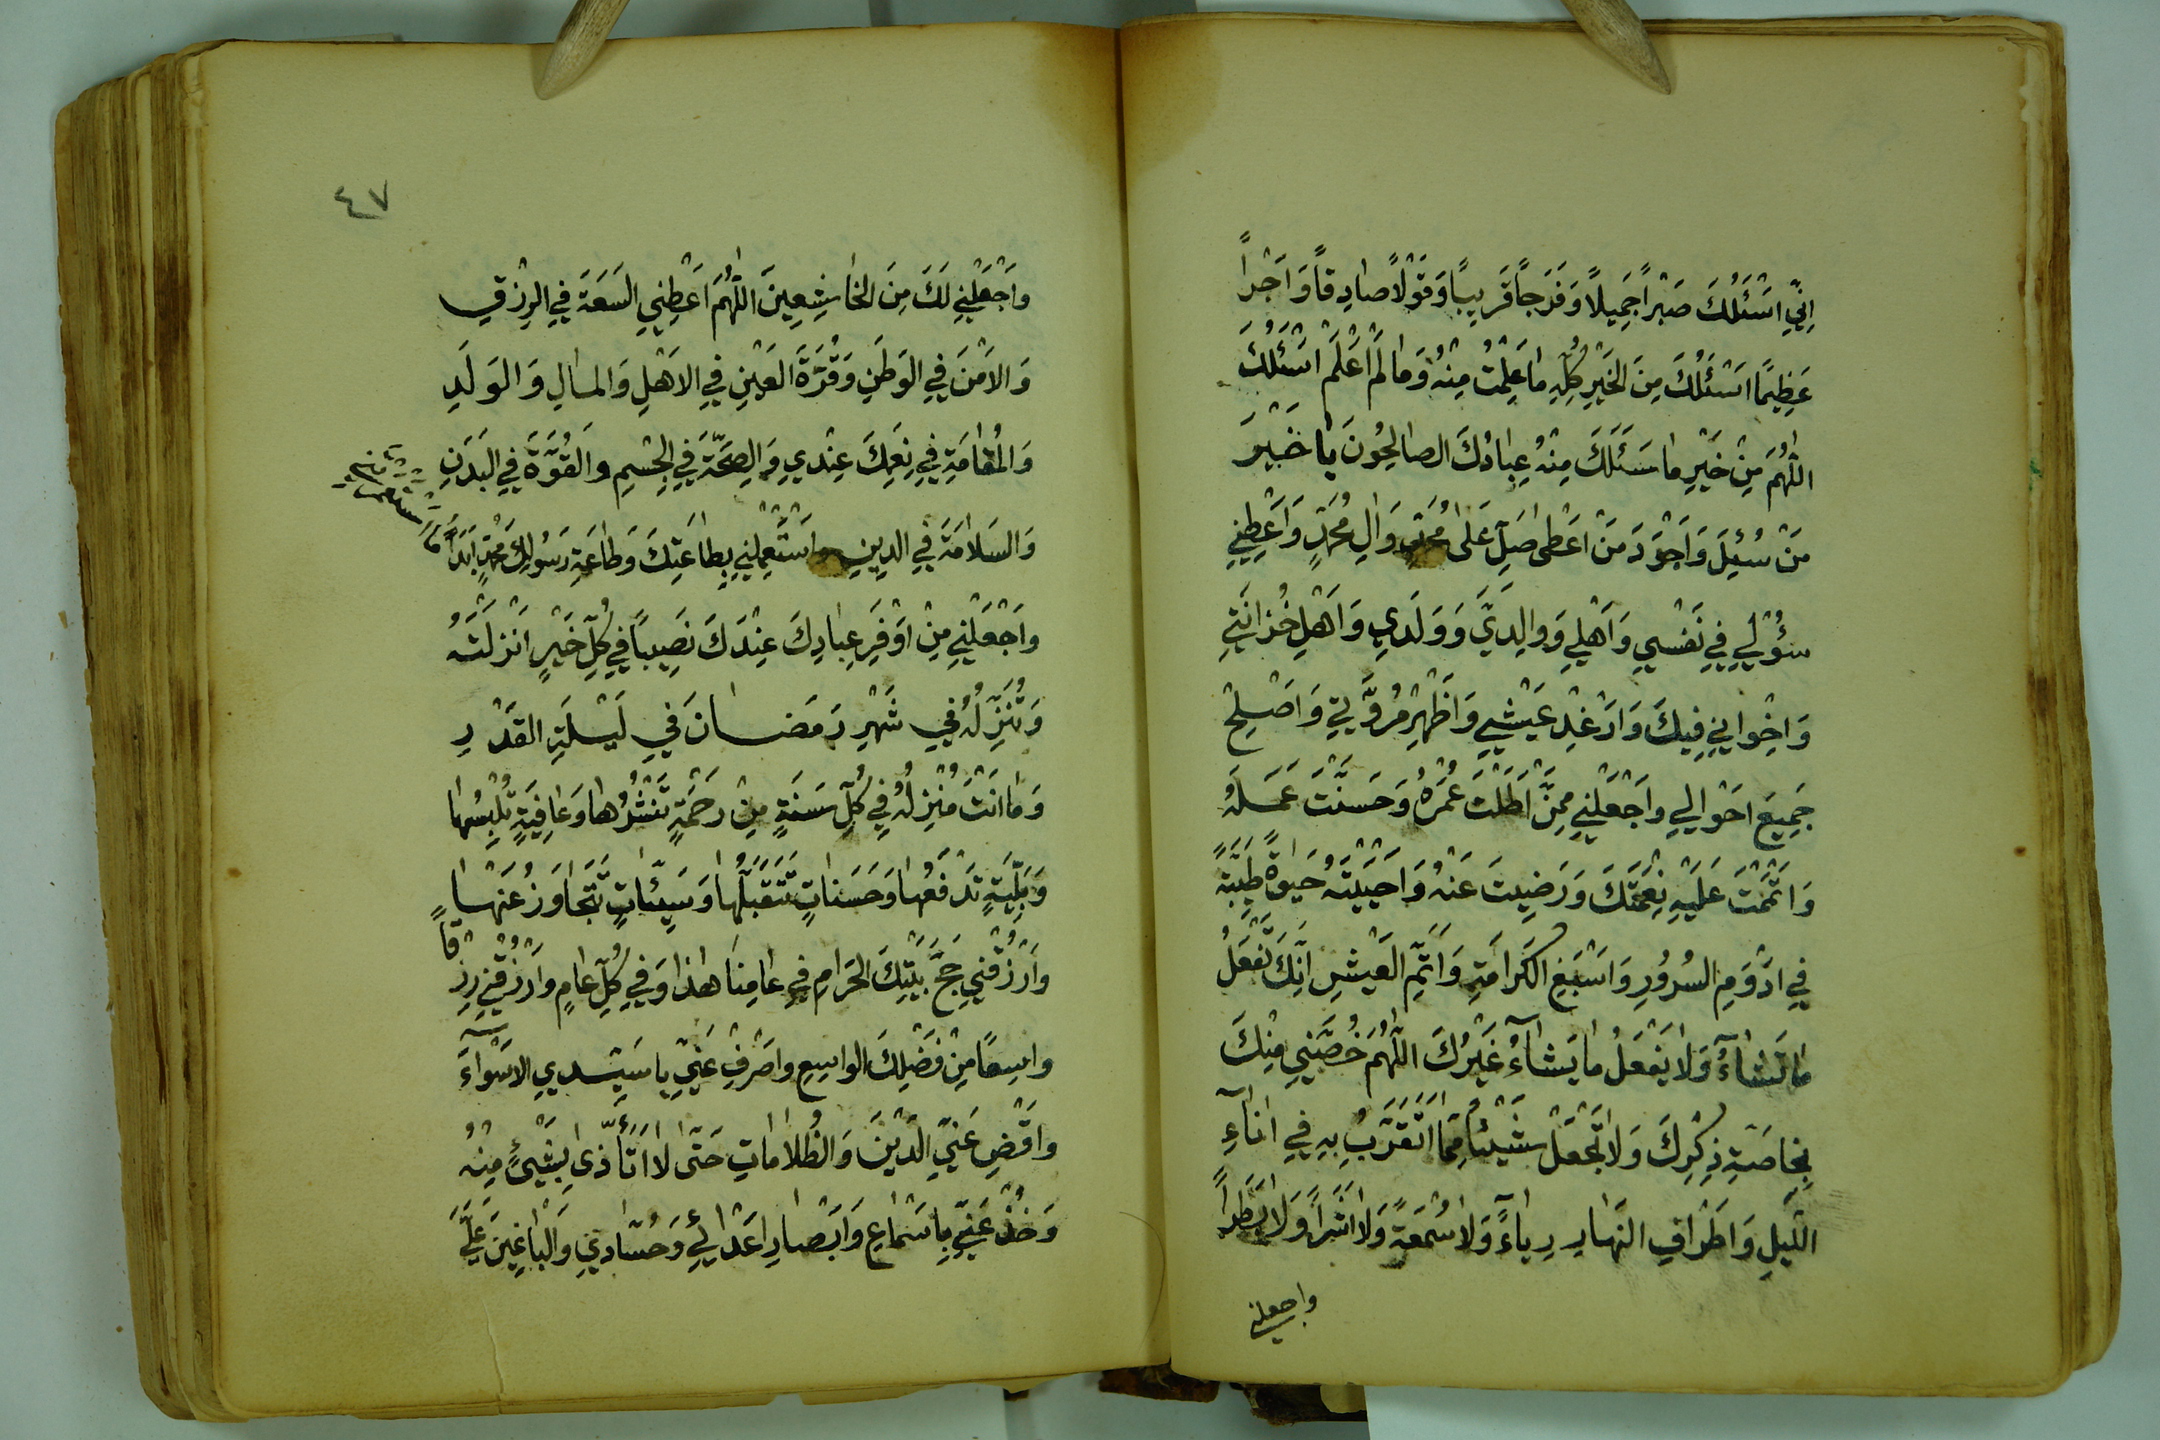 اِنّي اَسْئَلُكَ صَبْراً جَميلاً وَفَرَجاً قَريباً وَقَوْلاً صادِقاً وَاَجْراً
عَظيماً اَسْئَلُكَ مِنَ الخَيْرِ كُلِّهِ ما عَلِمْتُ مِنْهُ وَما لَمْ اَعْلَمْ اَسْئَلُكَ
اللّهُمَّ مِنْ خَيْرِ ما سَئَلَكَ مِنْهُ عِبادُكَ الصالِحُونَ يا خَيْرَ
مَنْ سُئِلَ وَاَجْوَدَ مَنْ اَعْطى صَلِّ عَلى مُحَمَّدٍ وَالِ مُحَمَّدٍ وَاَعْطِني
سُؤْلي في نَفْسي وَاَهْلي وَوالِدَيَّ وَوَلَدي وَاَهْلِ خُزانَتي
وَاِخْواني فيكَ وَاَرْغِدْ عَيْشي وَاَظْهِرْ مُرُوَّتي وَاَصْلِحْ
جَميعَ اَحْوالي وَاجْعَلْني مِمَّنْ اَطَلْتَ عُمْرَهُ وَحَسَّنْتَ عَمَلَهُ
وَاَتْمَمْتَ عَلَيْهِ نِعْمَتَكَ وَرَضيتَ عَنْهُ وَاَحْيَيْتَهُ حَيوةً طَيِّبَةً
في اَدْوَمِ السُرُورِ وَاَسْبَغِ الكَرامَةِ وَاَتَمِّ العَيْشِ اِنَّكَ تَفْعَلُ
ما تَشآءُ وَلا يَفْعَلُ ما يَشآءُ غَيْرُكَ اللّهُمَّ خُصَّني مِنْكَ
بِخاصَّةِ ذِكْرِكَ وَلا تَجْعَلْ شَيْئاً مِمّا اَتَقَرَّبُ بِهِ في اناءِ
اللَيْلِ وَاَطْرافِ النَهارِ رِياءً وَلا سُمْعَةً وَلا اَشَراً وَلا بَطَراً
واجعلني
٤٧
وَاجْعَلْني لَكَ مِنَ الخاشِعينَ اللّهُمَّ اَعْطِني السَعَةَ في الرِزْقِ
وَالاَمْنَ في الوَطَنِ وَقُرَّةَ العَيْنِ في الاَهْلِ وَالمالِ وَالوَلَدِ
وَالمُقامَةِ في نِعَمِكَ عِنْدي وَالصِحَّةَ في الجِسْمِ وَالقُوَّةَ في البَدَنِ
وَالسَلامَةَ في الدِينِ وَاسْتَعْمِلْني بِطاعَتِكَ وَطاعَةِ رَسُولِكَ مُحَمَّدٍ اَبَداً ما
وَاجْعَلْني مِنْ اَوْفَرِ عِبادِكَ عِنْدَكَ نَصيباً في كُلِّ خَيْرٍ اَنْزَلْتَهُ
وَتُنَزِّلُهُ في شَهْرِ رَمَضانَ في لَيْلَةِ القَدْرِ
وَما اَنْتَ مُنْزِلُهُ في كُلِّ سَنَةٍ مِنْ رَحْمَةٍ تَنْشُرُها وَعافِيَةٍ تُلْبِسُها
وَبَلِيَّةٍ تَدْفَعُها وَحَسَناتٍ تَتَقَبَّلُها وَسَيِّئاتٍ تَتَجاوَزُ عَنْها
وَارْزُقْني حَجَّ بَيْتِكَ الحَرامِ في عامِنا هذا وَفي كُلِّ عامٍ وَارْزُقْني رِزْقاً
واسِعاً مِنْ فَضْلِكَ الواسِعِ وَاصْرِفْ عَنّي يا سَيِّدي الاَسْوآءَ
وَاقْضِ عَنّي الدَيْنَ وَالظُلاماتِ حَتّى لا اَتَاَذّى بِشَيْئٍ مِنْهُ
وَخُذْ عَنّي بِاَسْماعِ وَاَبْصارِ اَعْدائي وَحُسّادي وَالباغينَ عَلَيَّ